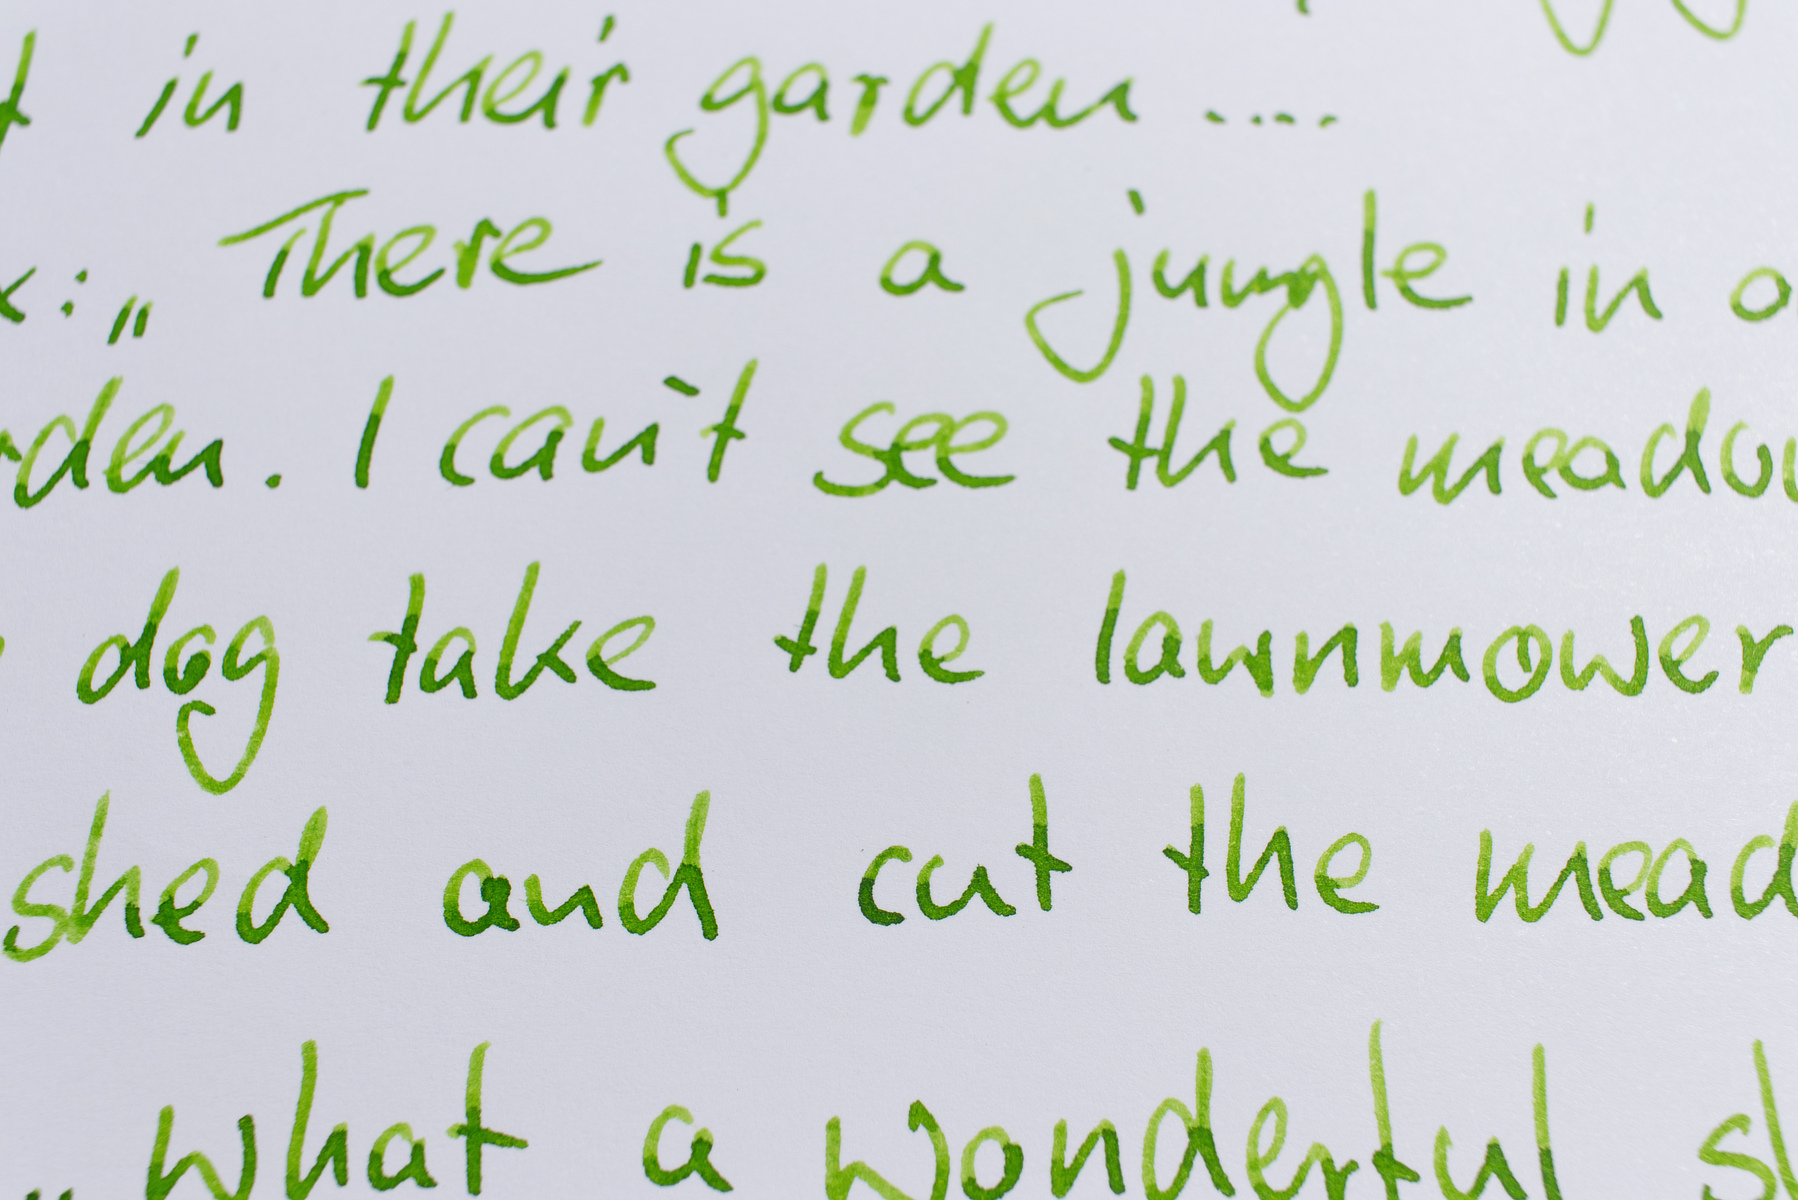 in their garden ....
: „There is a jungle in
. I can't see the
dog take the lawnmower
shed and cut the
„what a wonderful